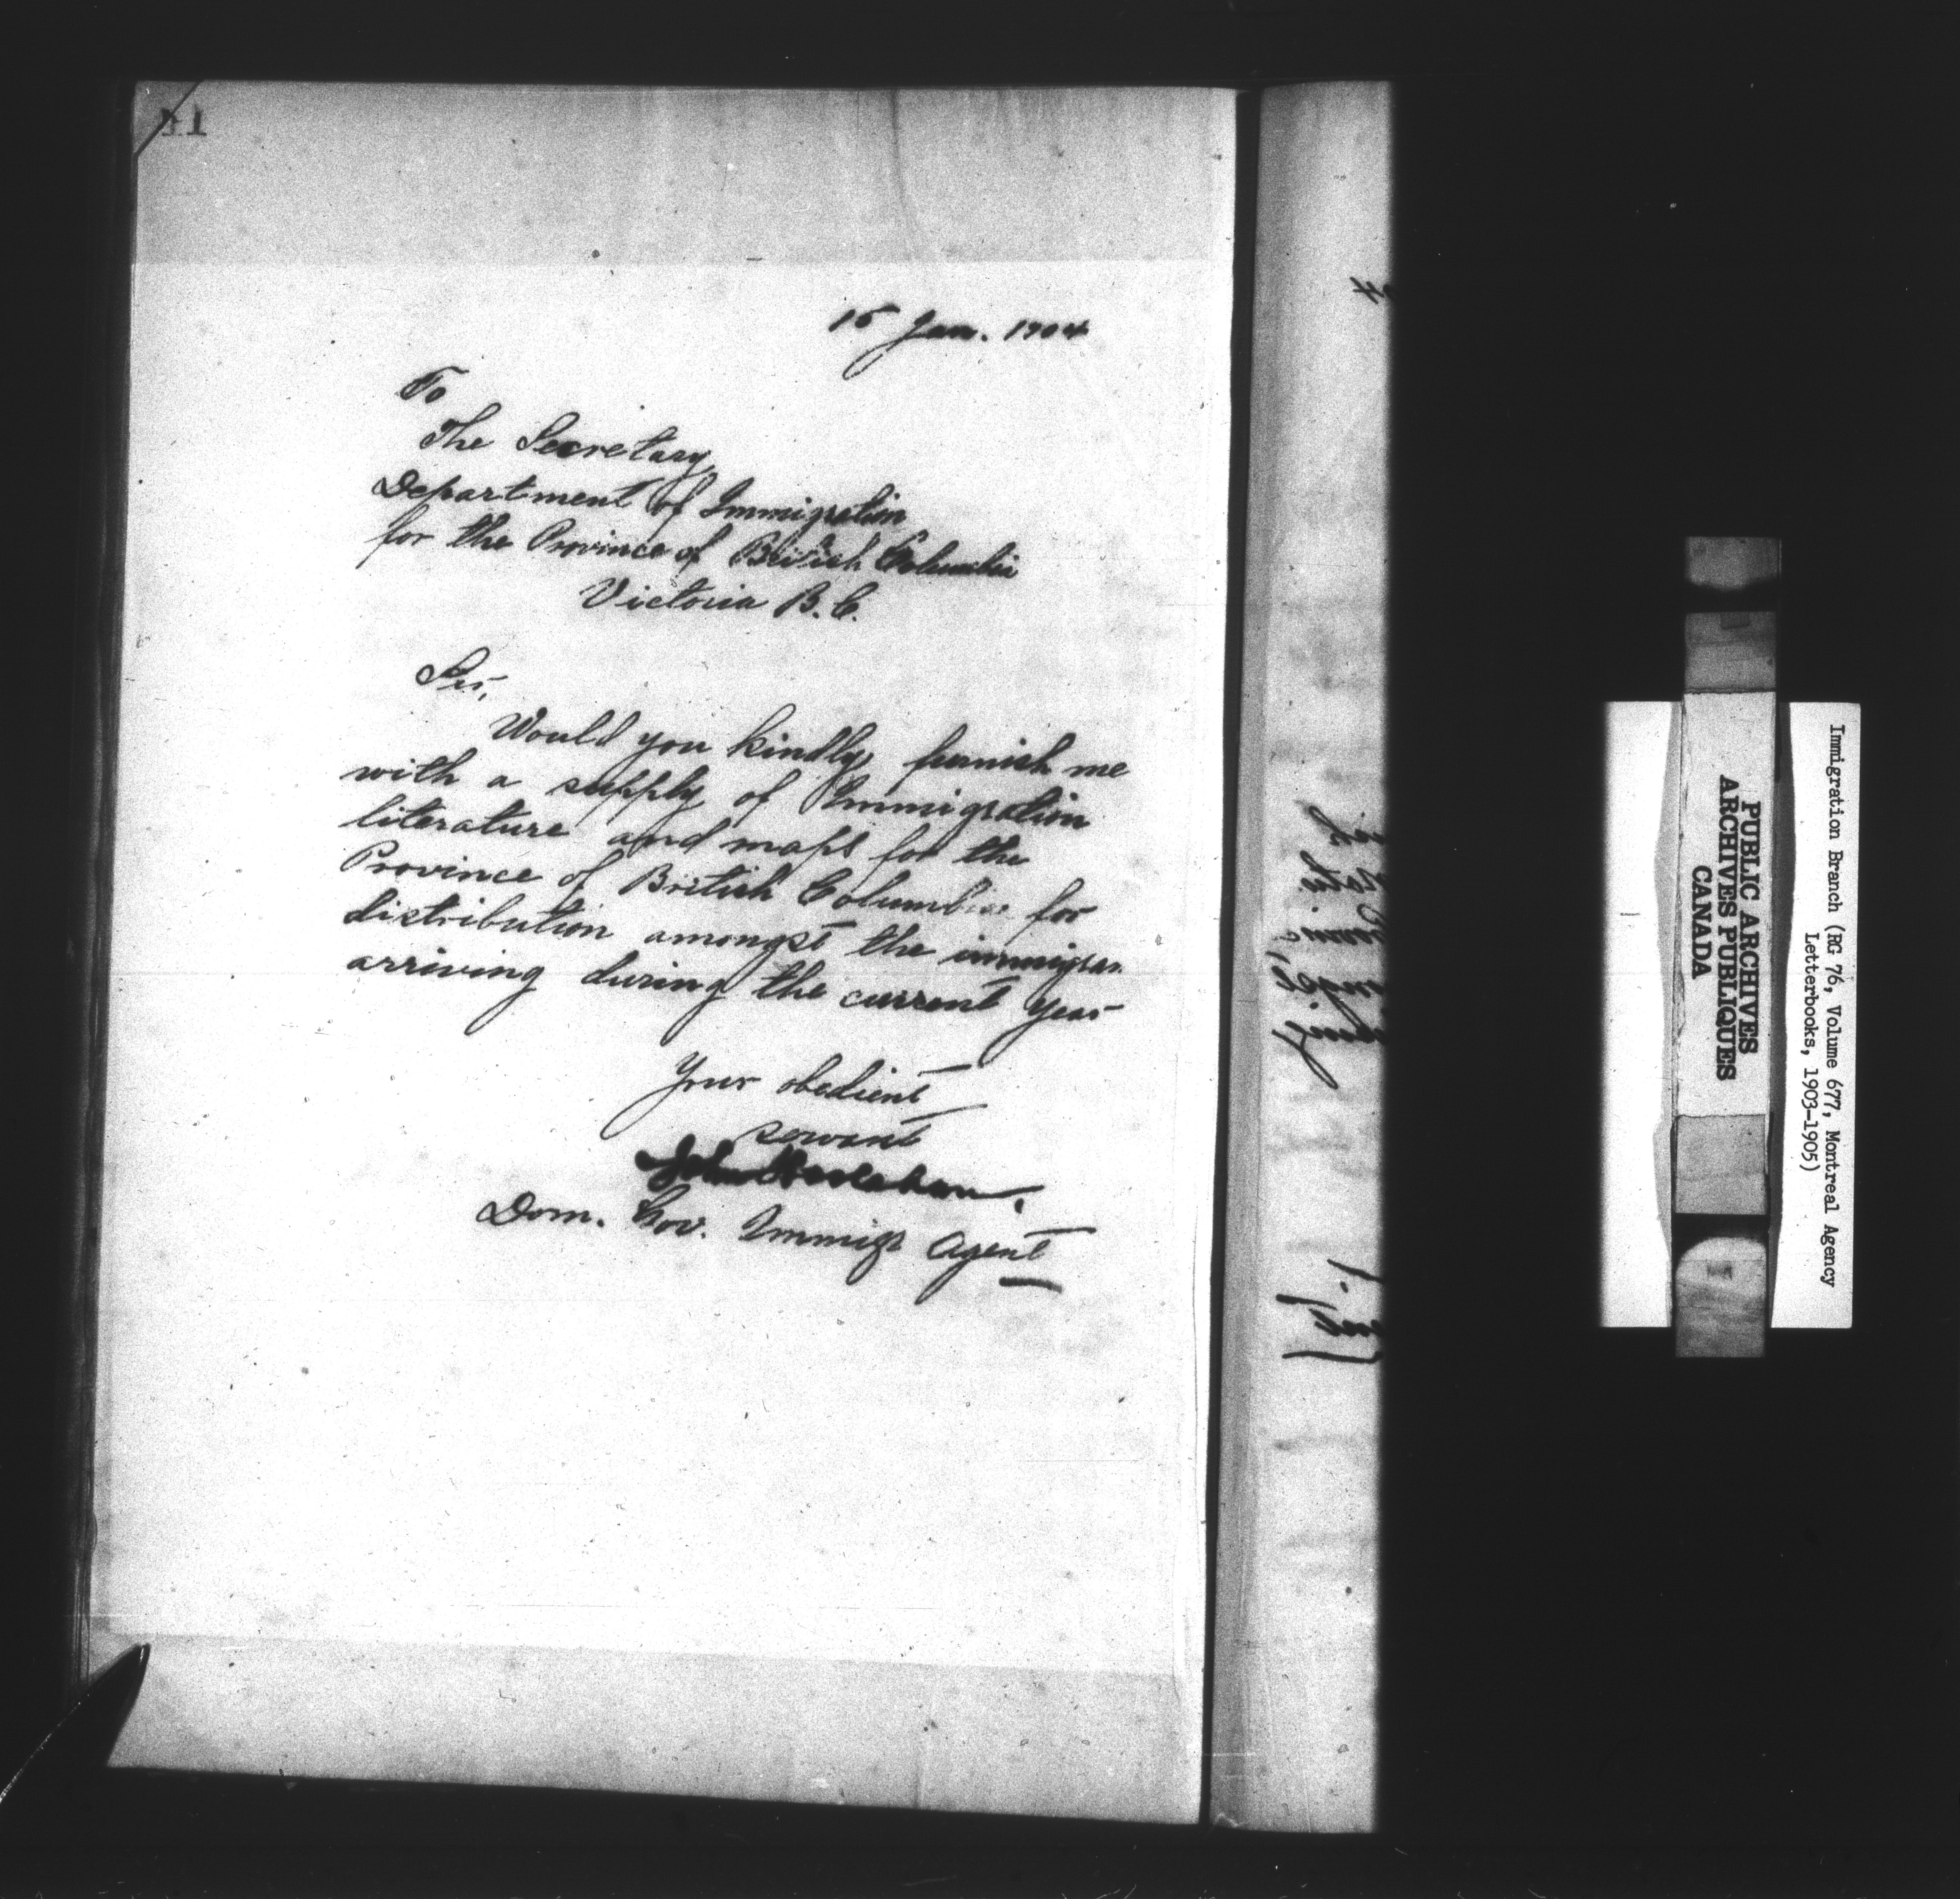 15 Jan. 1904
To
The Secretary
Department of Immigration
for the Province of British Columbia
Victoria B.C.
Sir,
Would you kindly furnish me
with a supply of Immigration
literature and maps for the
Province of British Columbia for
distribution amongst the immigran
arriving during the current year
Your obedient
servant
John Hoolahan.
Dom. Gov. Immigr Agent
Immigration Branch (RG 76, Volume 677, Montreal Agency
Letterbooks, 1903-1905)
PUBLIC ARCHIVES
ARCHIVES PUBLIQUES
CANADA